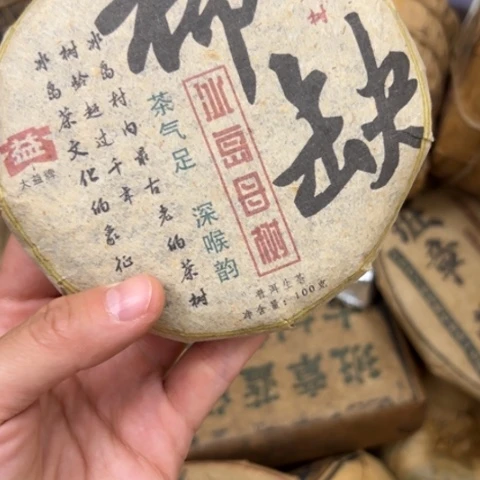 缺
树
茶气足
深喉韵
冰岛村内最古老的茶树
树龄越过千年
冰岛茶文化的象征
益
大益牌
普洱生茶
净含量：100克
班章